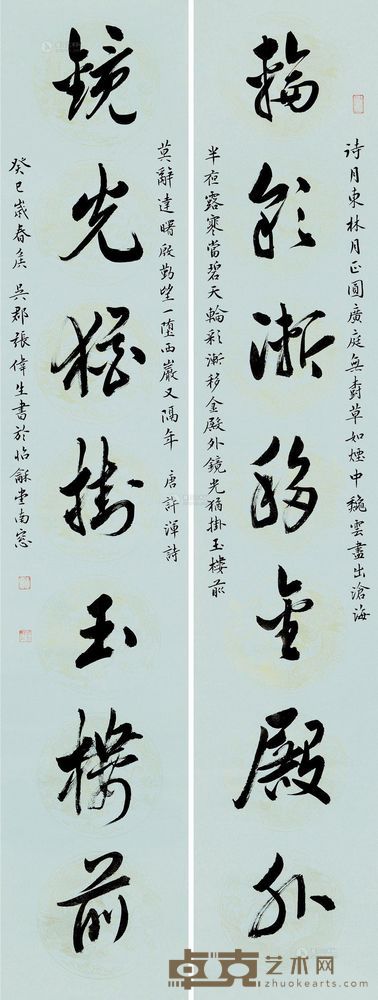 待月東林月正圓廣庭無樹草如煙中穐雲盡出滄海
輪彩漸移金殿外
半夜露寒當碧天輪彩漸移金殿外鏡光猶掛玉樓前
莫辭達曙殷勤望一墮西巖又隔年 唐許渾詩
鏡光猶掛玉樓前
癸巳歲春 吳郡張偉生書於怡龢堂南窓
卓克艺术网
www.zhuokearts.com